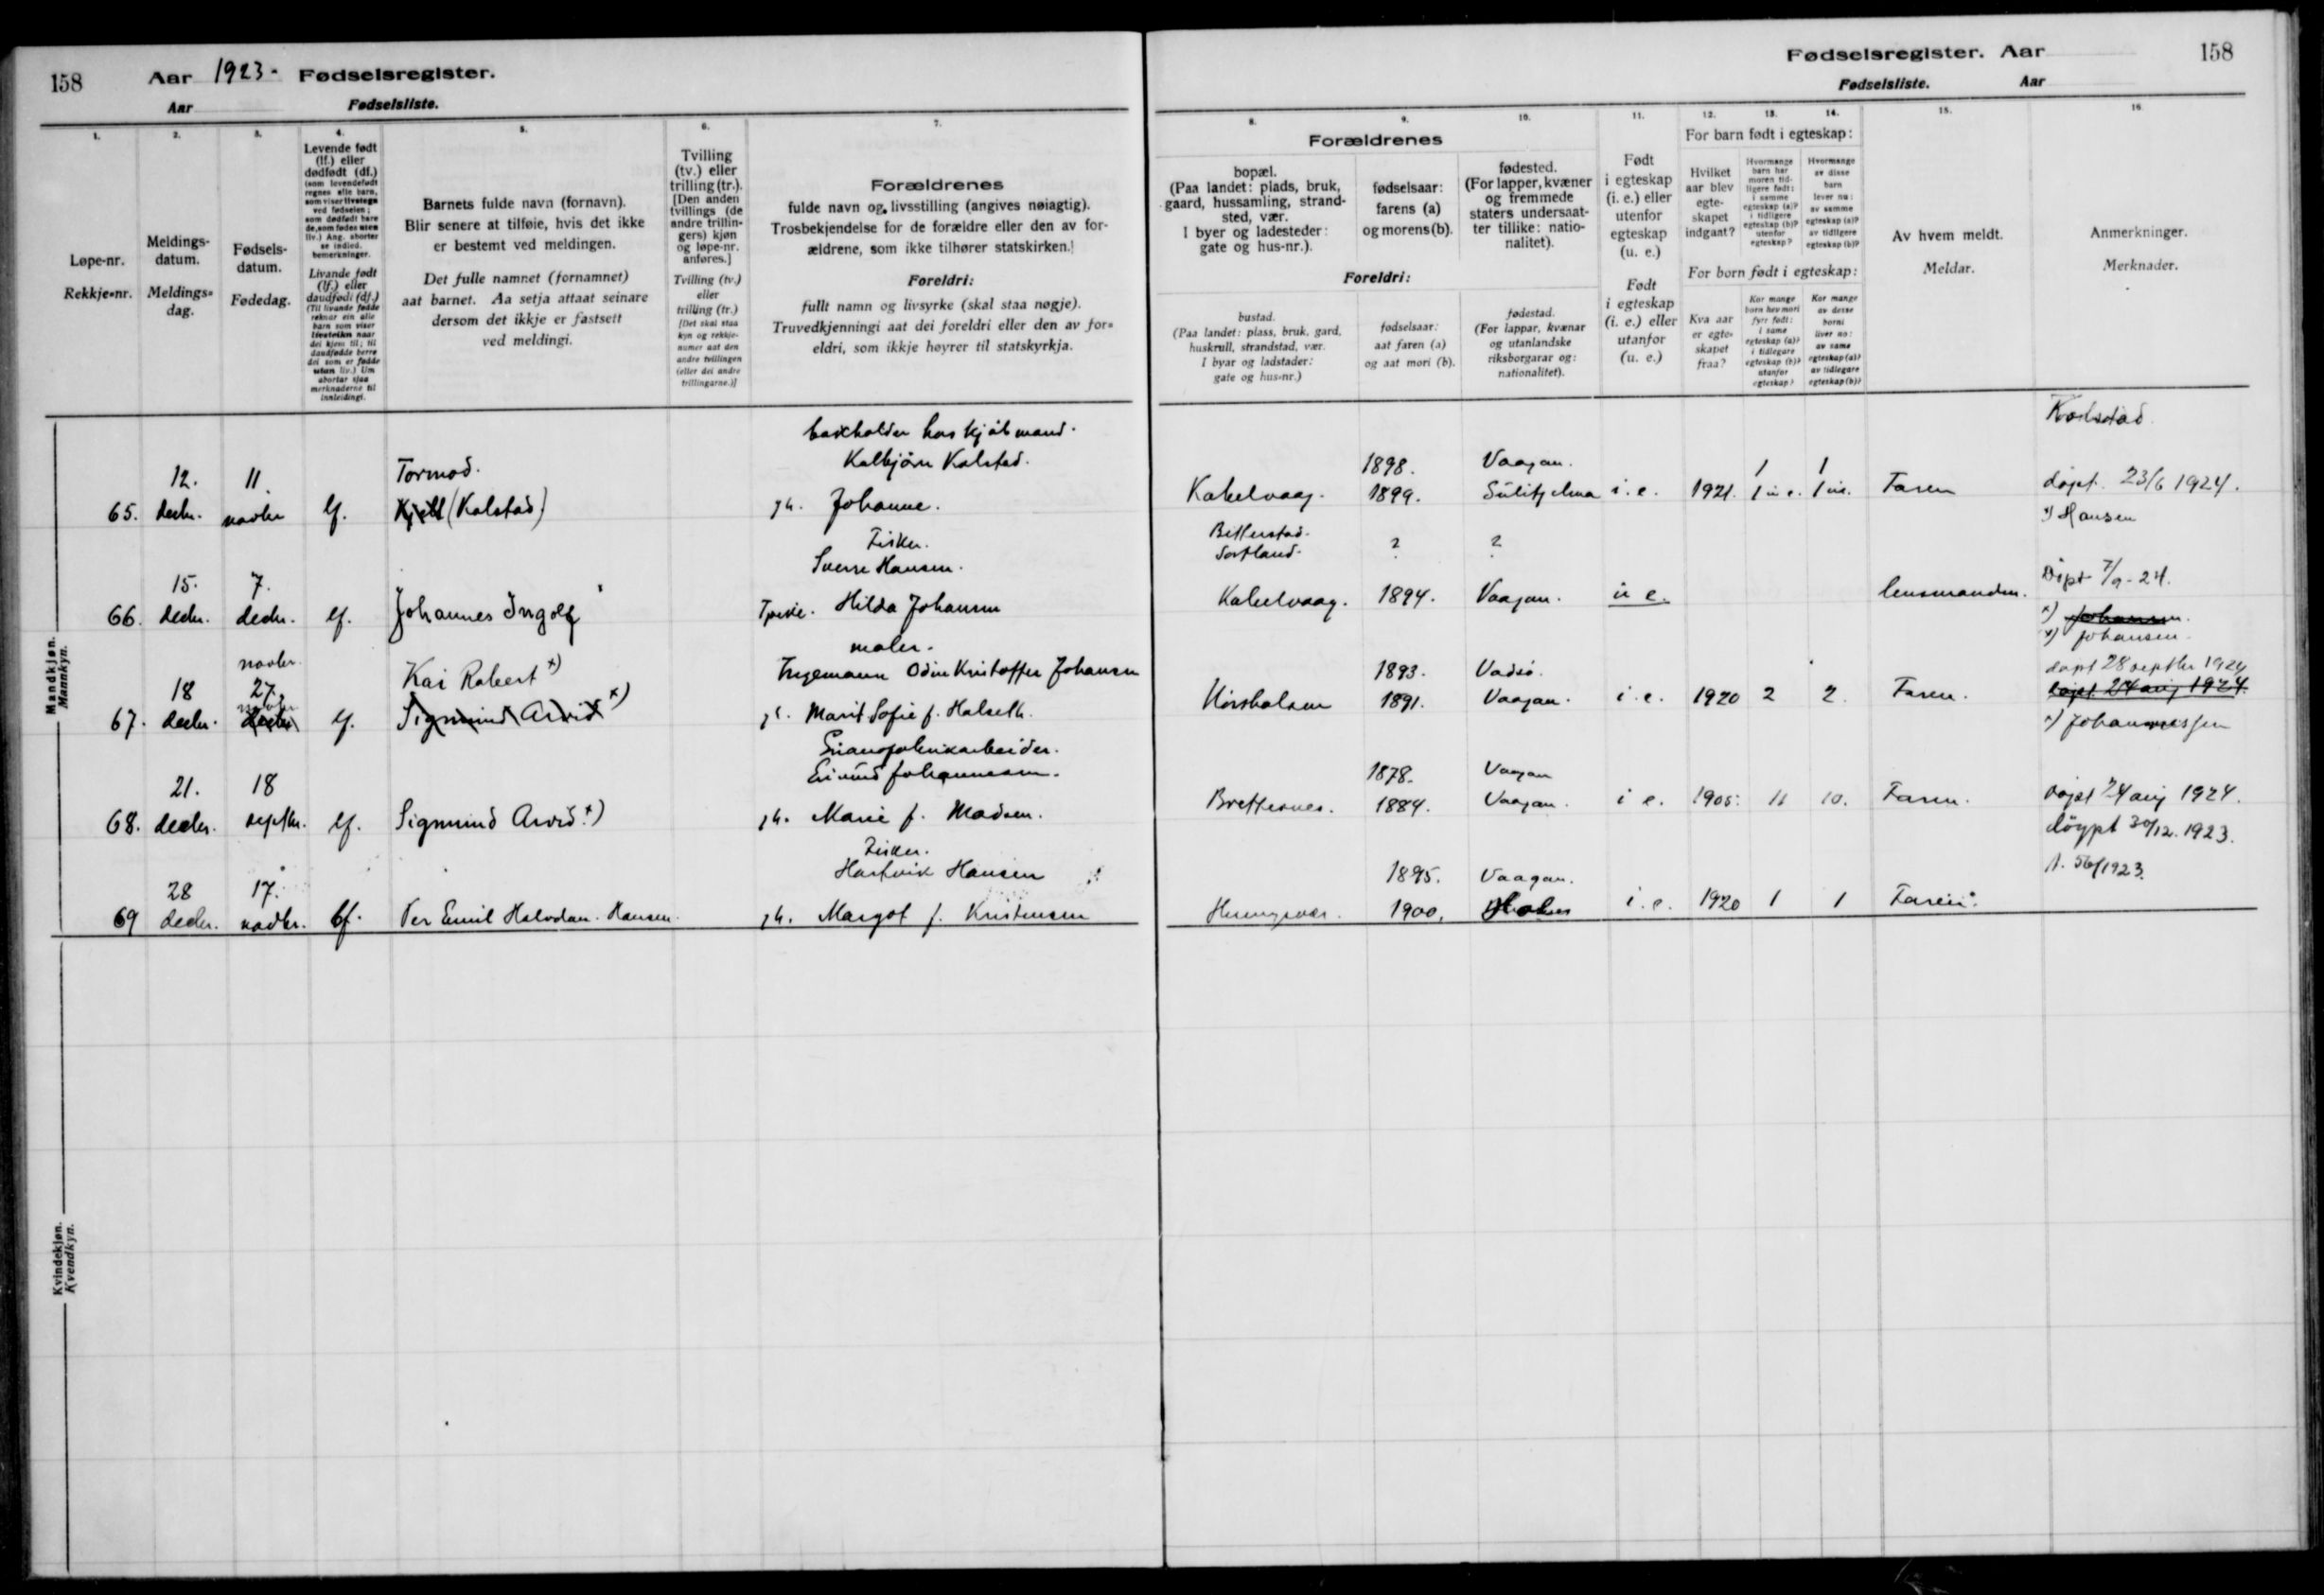 158 Aar 1923. Fødselsregister.
Aar Fødselsliste.
1.
Løpe-nr.
Rekkje-nr.
2.
Meldings-
datum.
Meldings-
dag.
3.
Fødsels-
datum.
Fødedag.
4.
Levende født
(lf.) eller
dødfødt (df.)
(som levendefødt
regnes alle barn,
som viser livstegn
ved fødselen;
som dødfødt bare
de, som fødes uten
liv.) Ang. aborter
se indled.
bemerkninger.
Livande født
(lf.) eller
daudfødt (df.)
(Til livande fødde
reknar ein alle
barn som viser
livsteikn naar
dei kjem til; til
daudfødde berre
dei som er fødde
utan liv.) Um
abortar sjaa
merknaderne til
innleidingi.
5.
Barnets fulde navn (fornavn).
Blir senere at tilføie, hvis det ikke
er bestemt ved meldingen.
Det fulle namnet (fornamnet)
aat barnet. Aa setja attaat seinare
dersom det ikkje er fastsett
ved meldingi.
6.
Tvilling
(tv.) eller
trilling (tr.).
[Den anden
tvillings (de
andre trillin-
gers) kjøn
og løpe-nr.
anføres.]
Tvilling (tv.)
eller
trilling (tr.)
[Det skal staa
kyn og rekkje-
numer aat den
andre tvillingen
(eller dei andre
trillingarne.)]
7.
Forældrenes
fulde navn og livsstilling (angives nøiagtig).
Trosbekjendelse for de forældre eller den av for-
ældrene, som ikke tilhører statskirken.
Foreldri:
fullt namn og livsyrke (skal staa nøgje).
Truvedkjenningi aat dei foreldri eller den av for-
eldri, som ikkje høyrer til statskyrkja.
Mandkjøn.
Mannkyn.
Kvindekjøn.
Kvendkyn.
Kalbjørn Kalstad.
12. 11. Tormod.
65. decbr. novbr lf. Kjell (Kalstad) gh. Johanne.
Fisker.
Sverre Hansen.
15. 7.
66. decbr. decbr. lf. Johannes Ingolf Hilda Johansen
maler.
novbr. Kai Robert x) Ingemann Odin Kristoffer Johansen
18 27.
67. decbr. novbr decbr lf. Sigmund Arvid x) gh. Marit Sofie f. Halseth.
Guanofabrikarbeider.
Eivind Johannesen.
21. 18
68. decbr. septbr. lf. Sigmund Arvid x) gh. Marie f. Madsen.
Fisker.
Hartvik Hansen
28 17.
69 decbr. novbr. lf. Per Emil Halvdan Hansen. gh. Margot f. Kristensen
Fødselsregister. Aar 158
Fødselsliste. Aar
8.
Forældrenes
bopæl.
(Paa landet: plads, bruk,
gaard, hussamling, strand-
sted, vær.
I byer og ladesteder:
gate og hus-nr.).
Foreldri:
bustad.
(Paa landet: plass, bruk, gard,
huskrull, strandstad, vær.
I byar og ladstader:
gate og hus-nr.)
9.
fødselsaar:
farens (a)
og morens (b).
fødselsaar:
aat faren (a)
og aat mori (b).
10.
fødested.
(For lapper, kvæner
og fremmede
staters undersaat-
ter tillike: natio-
nalitet).
fødestad.
(For lappar, kvænar
og utanlandske
riksborgarar og:
nationalitet).
11.
Født
i egteskap
(i. e.) eller
utenfor
egteskap
(u. e.)
Født
i egteskap
(i. e.) eller
utanfor
(u. e.)
12. 13. 14.
For barn født i egteskap:
Hvilket
aar blev
egte-
skapet
indgaat?
Hvormange
barn har
moren tid-
ligere født:
i samme
egteskap (a)?
i tidligere
egteskap (b)?
utenfor
egteskap?
Hvormange
av disse
barn
lever nu:
av samme
egteskap (a)?
av tidligere
egteskap (b)?
For born født i egteskap:
Kva aar
er egte-
skapet
fraa?
Kor mange
born hev mori
fyrr født:
i same
egteskap (a)?
i tidlegare
egteskap (b)?
utanfor
egteskap?
Kor mange
av desse
borni
liver no:
av same
egteskap (a)?
av tidlegare
egteskap (b)?
15.
Av hvem meldt.
Meldar.
16.
Anmerkninger.
Merknader.
1898. Vaagan. 1 1
Kabelvaag. 1899. Sulitjelma i. e. 1921. 1 u e. 1 Faren døpt 23/6 1924.
x) Hansen
Bitterstad.
Sortland. ? ?
Døpt 7/9-24.
Kabelvaag. 1894. Vaagan. u e. lensmanden.
x) Johansen.
x) Johansen.
1893. Vadsø. døpt 28 septbr 1924
1891. Vaagan. i. e. 1920 2 2. Faren. døpt 24 aug 1924.
x) Johannessen
1878. Vaagan
Brettesnes. 1884. Vaagan. i e. 1905. 11 10. Faren. døpt 24 aug 1924.
døypt 30/12. 1923.
1895. Vaagan. 56/1923.
Henningsvær. 1900. i. e. 1920 1 1 Faren.